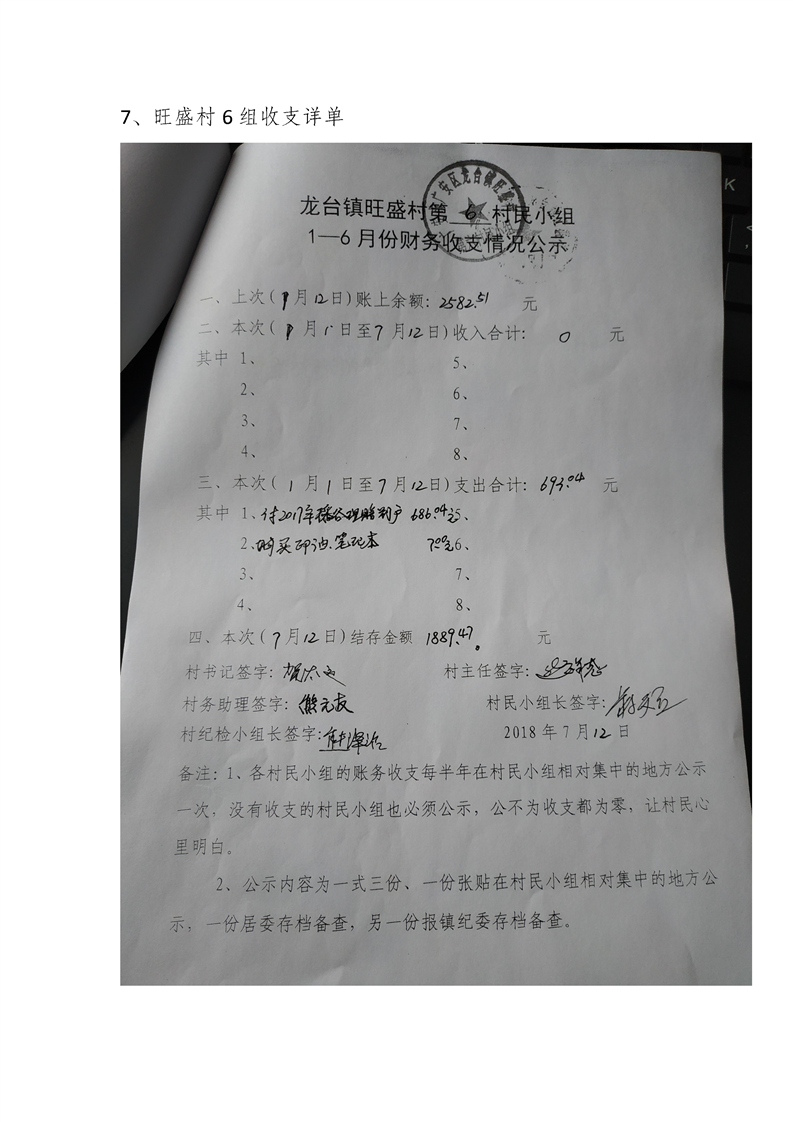 7、旺盛村6组收支详单
广安区龙台镇旺盛
龙台镇旺盛村第 6 村民小组
1—6月份财务收支情况公示
一、上次(1月12日)账上余额:2582.51 元
二、本次(1月1日至7月12日)收入合计: 0 元
其中 1、 5、
2、 6、
3、 7、
4、 8、
三、本次(1月1日至7月12日)支出合计:693.04 元
其中 1、付2017年 686.04元 5、
2、购买印油、笔记本 7.00元 6、
3、 7、
4、 8、
四、本次(7月12日)结存金额 1889.47。 元
村书记签字: 村主任签字:
村务助理签字:熊元友 村民小组长签字:
村纪检小组长签字: 2018年7月12日
备注:1、各村民小组的账务收支每半年在村民小组相对集中的地方公示
一次,没有收支的村民小组也必须公示,公不为收支都为零,让村民心
里明白。
2、公示内容为一式三份、一份张贴在村民小组相对集中的地方公
示,一份居委存档备查,另一份报镇纪委存档备查。